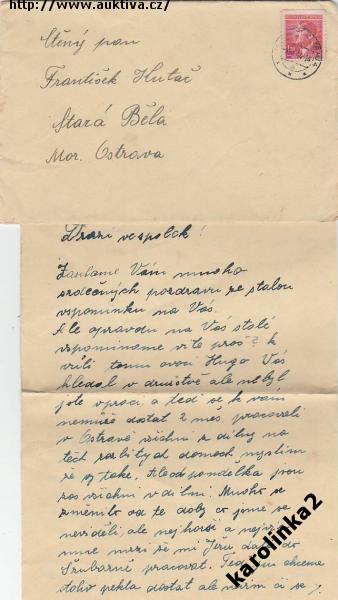 http://www.auktiva.cz/
Ctěný pan
František Hutač
Stará Běla
Mor. Ostrava
Drazí vespolek!
Zasíláme Vám mnoho
srdečných pozdravu ze stalou
vspomínku na Vás.
Ale opravdu na Vás stolé
vspominame víte proš? k
vůli tomu ovoci Hugo Vás
hledal v družstvě ale nebyl
jste v praci, a tedi se k vám
nemůže dostat 2 měs. pracovali
v Ostravě všichni z dílny na
těch domech myslim
že vy take. od pondelka jsou
zas všichni v dilni. Mnoho se
změnilo od té doby co jsme se
neviděli, ale nejhorší a
mne mrzí že mi Jířu
Šrubarně pracovat.
toho pekla dostat ale nevim či se
karolinka2